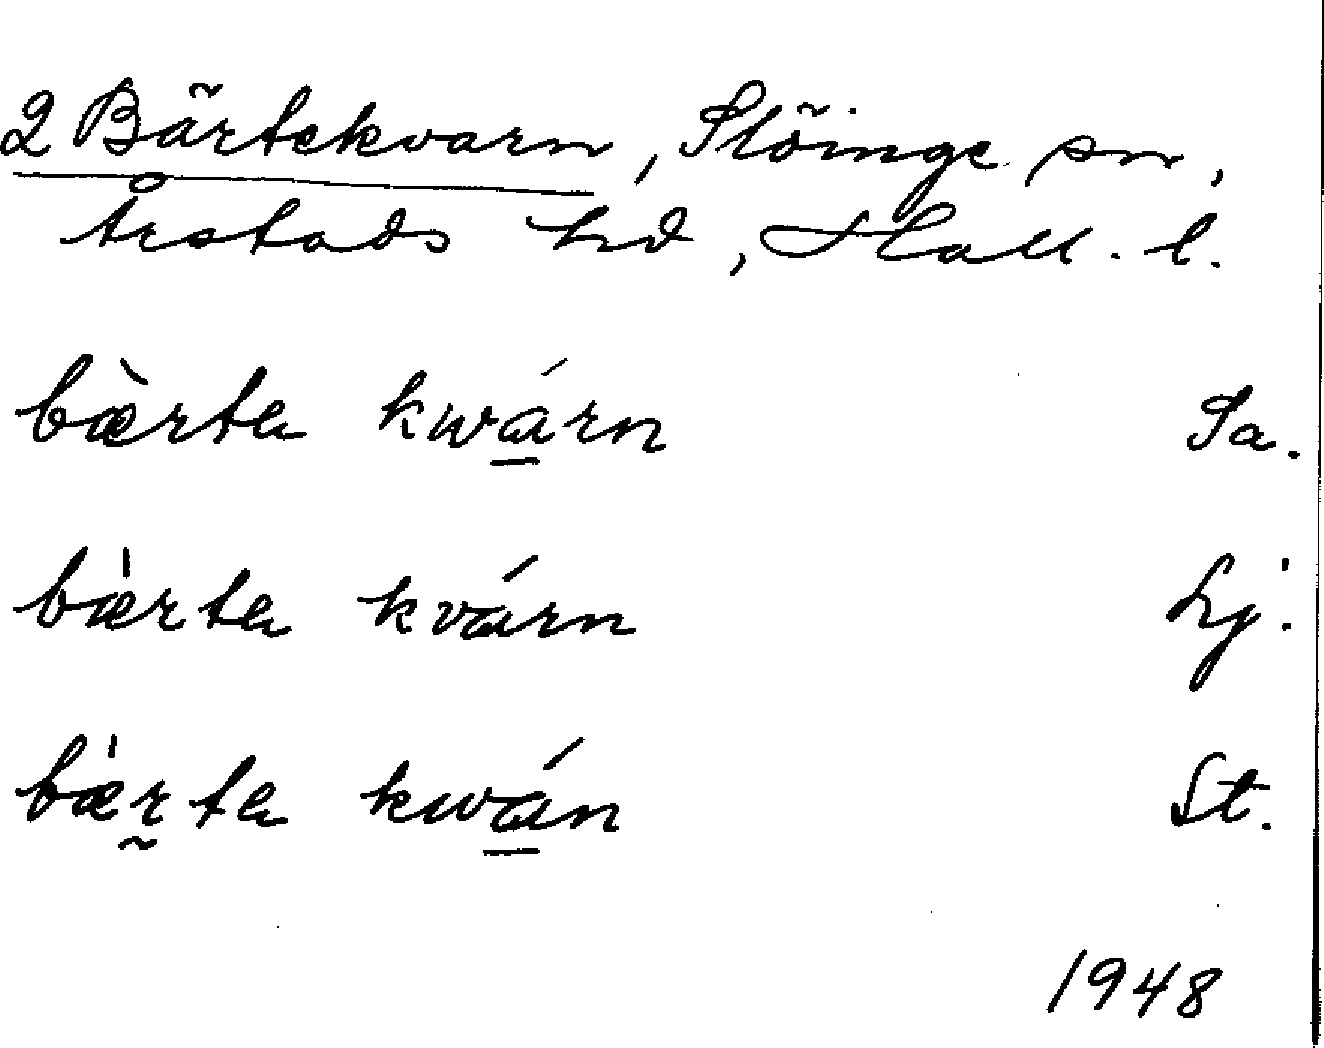 2 Bärtekvarn, Slöinge sn,
Årstads hd, Hall. l.
bæ̀rta kwá̲rn Sa.
bæ̀rta kvárn Lj.
bæ̀r̰ta kwá̲n St.
1948